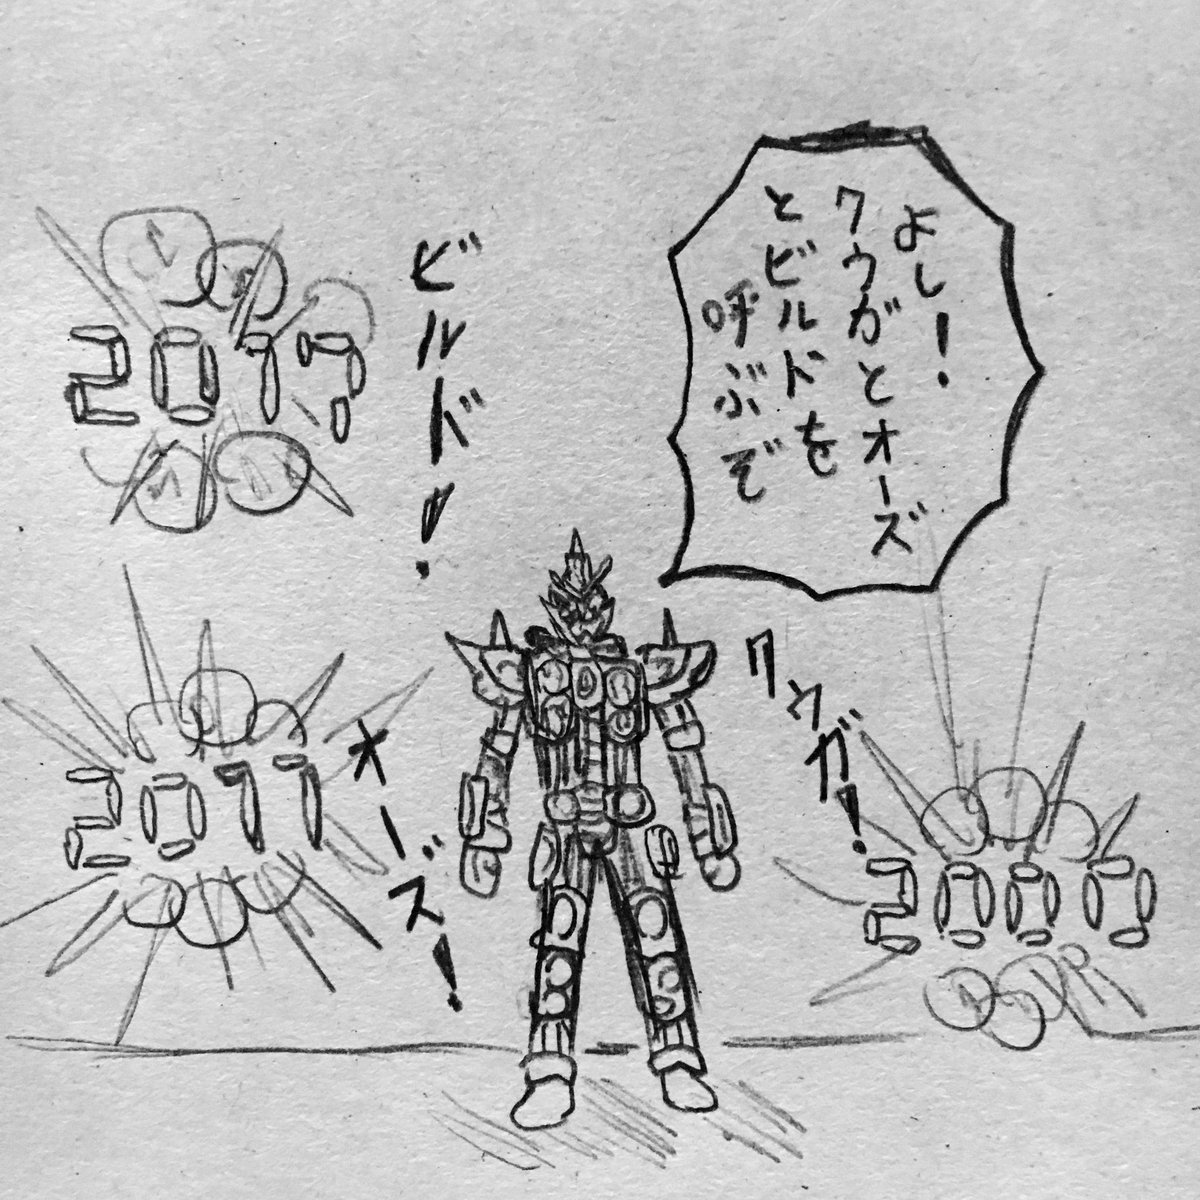 よし！
クウガとオーズ
とビルドを
呼ぶぞ
クウガ！
2000
ビルド！
2017
オーズ！
2011